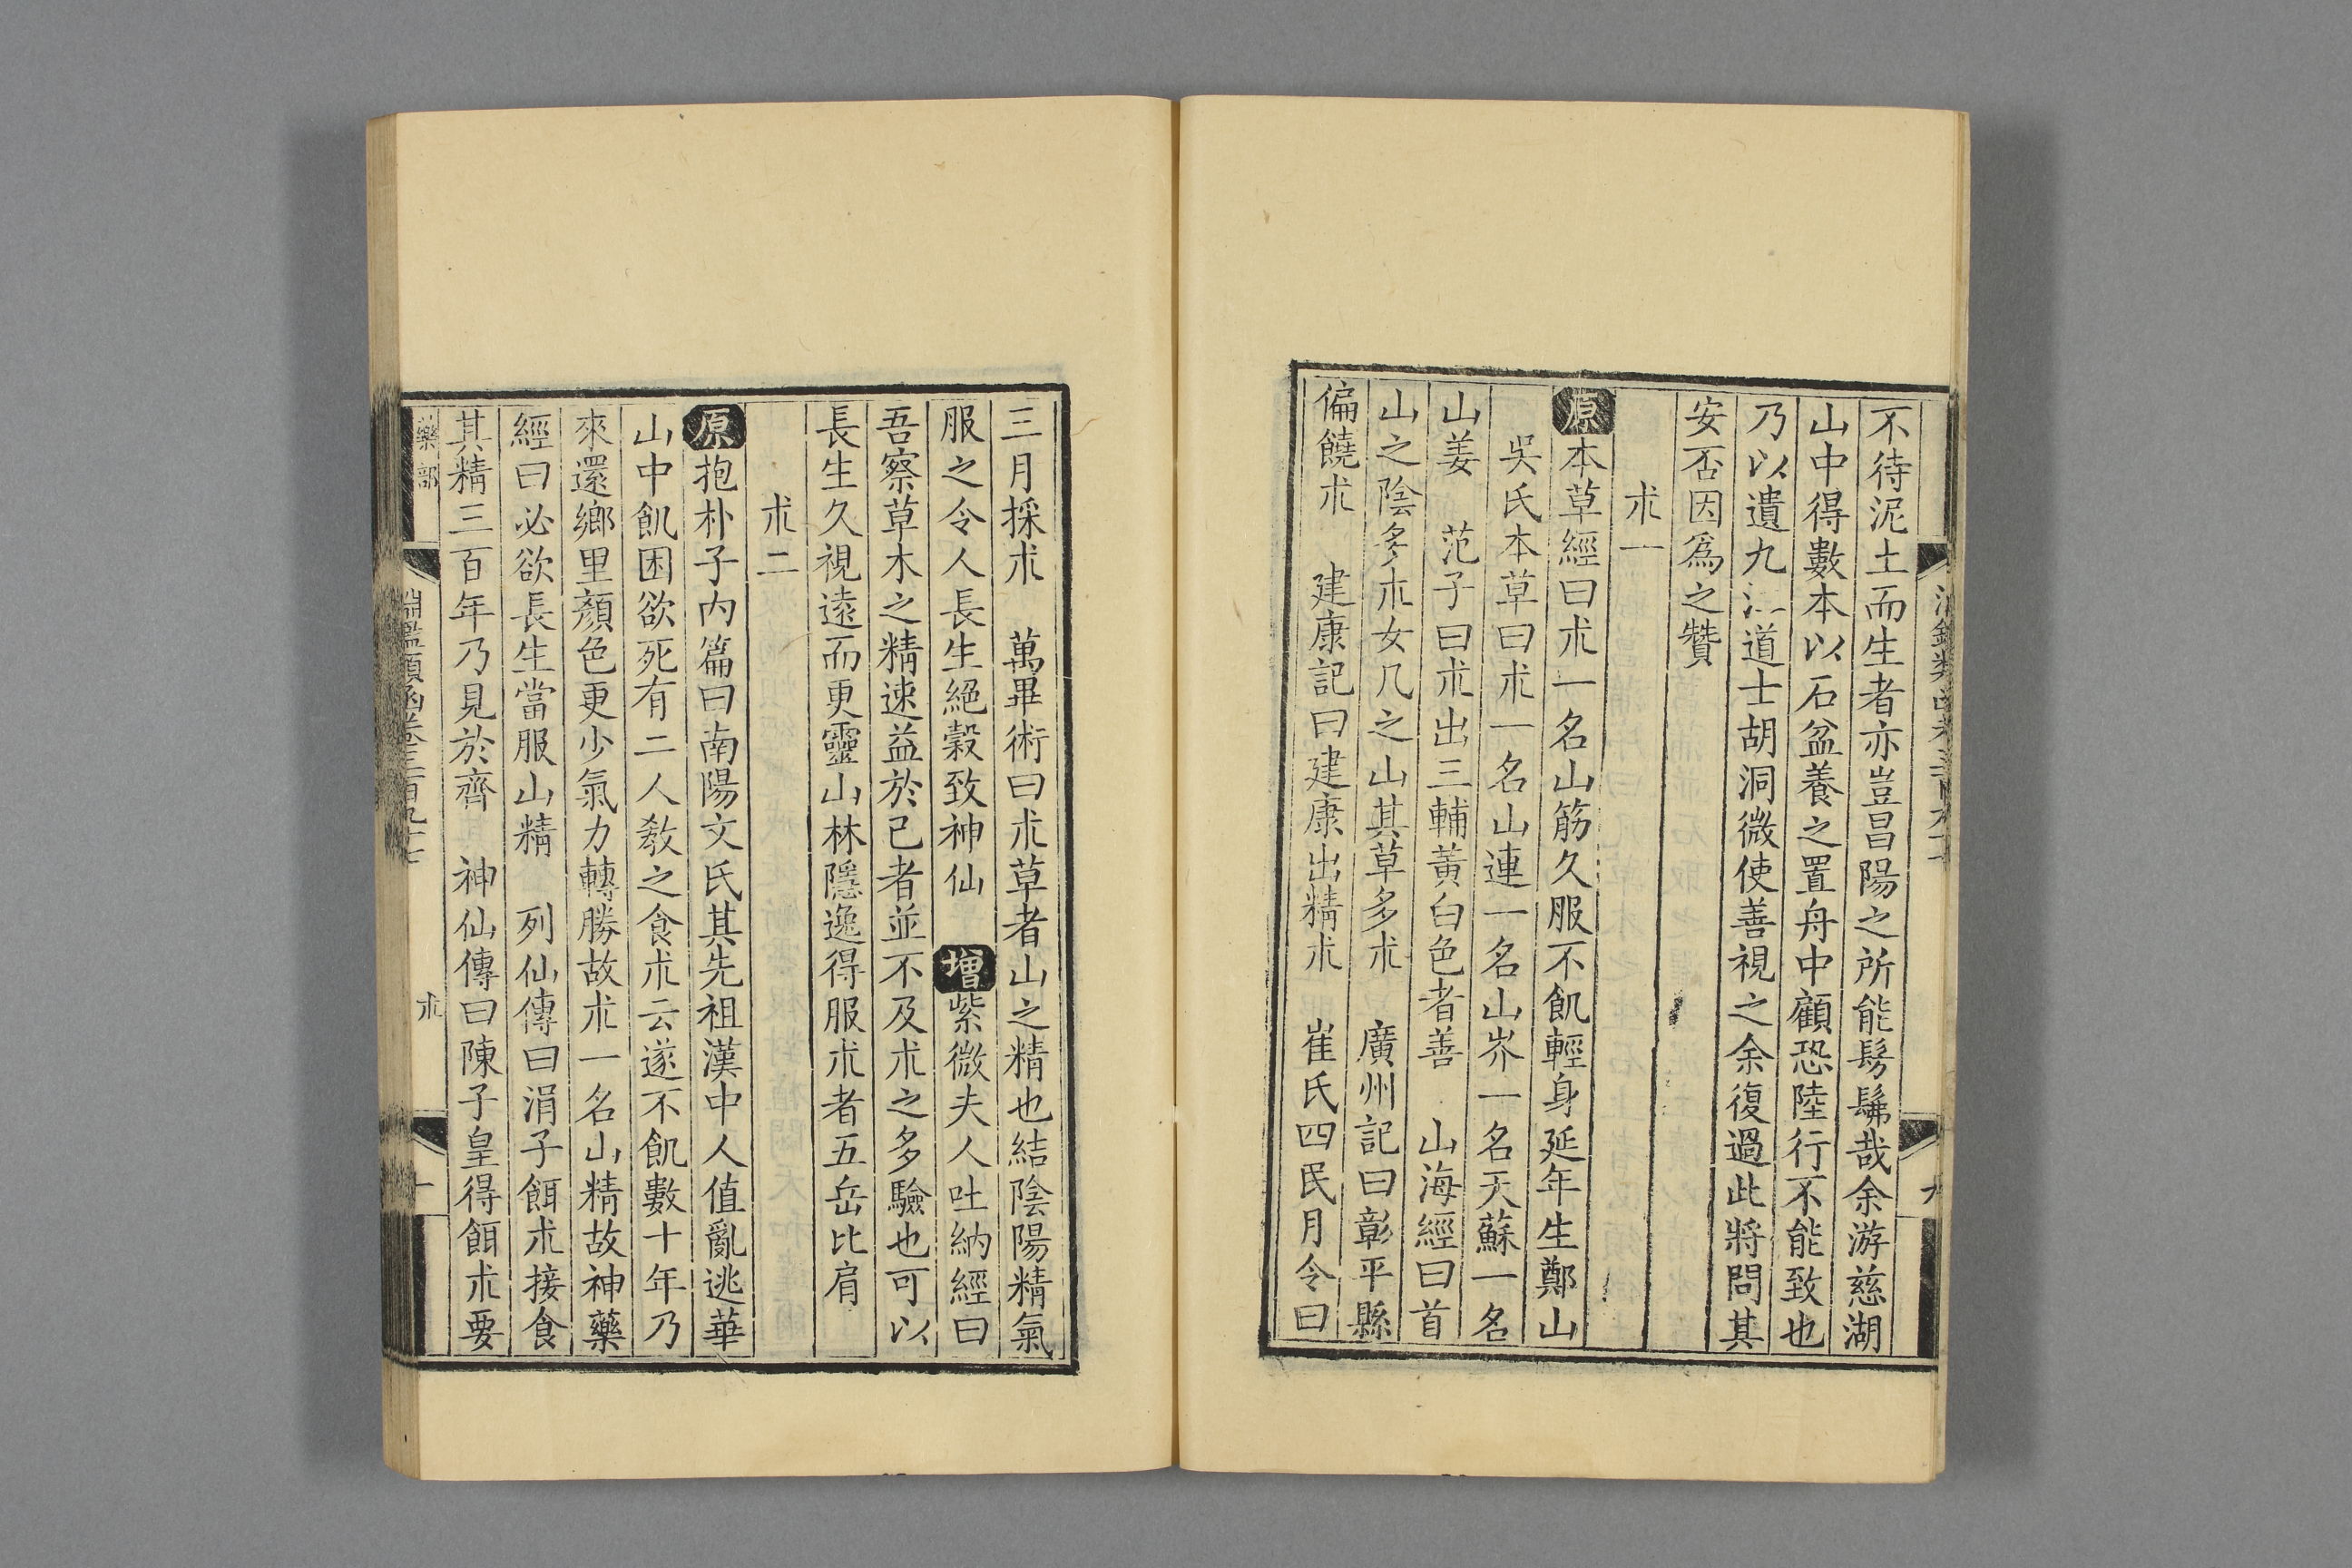 不待泥土而生者亦豈昌陽之所能髣髴哉余游慈湖
山中得數本以石盆養之置舟中顧恐陸行不能致也
乃以遺九江道士胡洞微使善視之余復過此將問其
安否因爲之贊
朮一
原本草經曰朮一名山筋久服不飢輕身延年生鄭山
吳氏本草曰朮一名山連一名山芥一名天蘇一名
山姜　范子曰朮出三輔黃白色者善　山海經曰首
山之陰多朮女几之山其草多朮　廣州記曰彰平縣
偏饒朮　建康記曰建康出精朮　崔氏四民月令曰
九
三月採朮　萬畢術曰朮草者山之精也結陰陽精氣
服之令人長生絕穀致神仙　增紫微夫人吐納經曰
吾察草木之精速益於己者並不及朮之多驗也可以
長生久視遠而更靈山林隱逸得服朮者五岳比肩
朮二
原抱朴子内篇曰南陽文氏其先祖漢中人值亂逃華
山中飢困欲死有二人教之食朮云遂不飢數十年乃
來還鄉里顏色更少氣力轉勝故朮一名山精故神藥
經曰必欲長生當服山精　列仙傳曰涓子餌朮接食
其精三百年乃見於齊　神仙傳曰陳子皇得餌朮要
藥部　淵鑑類函卷三百九十　朮